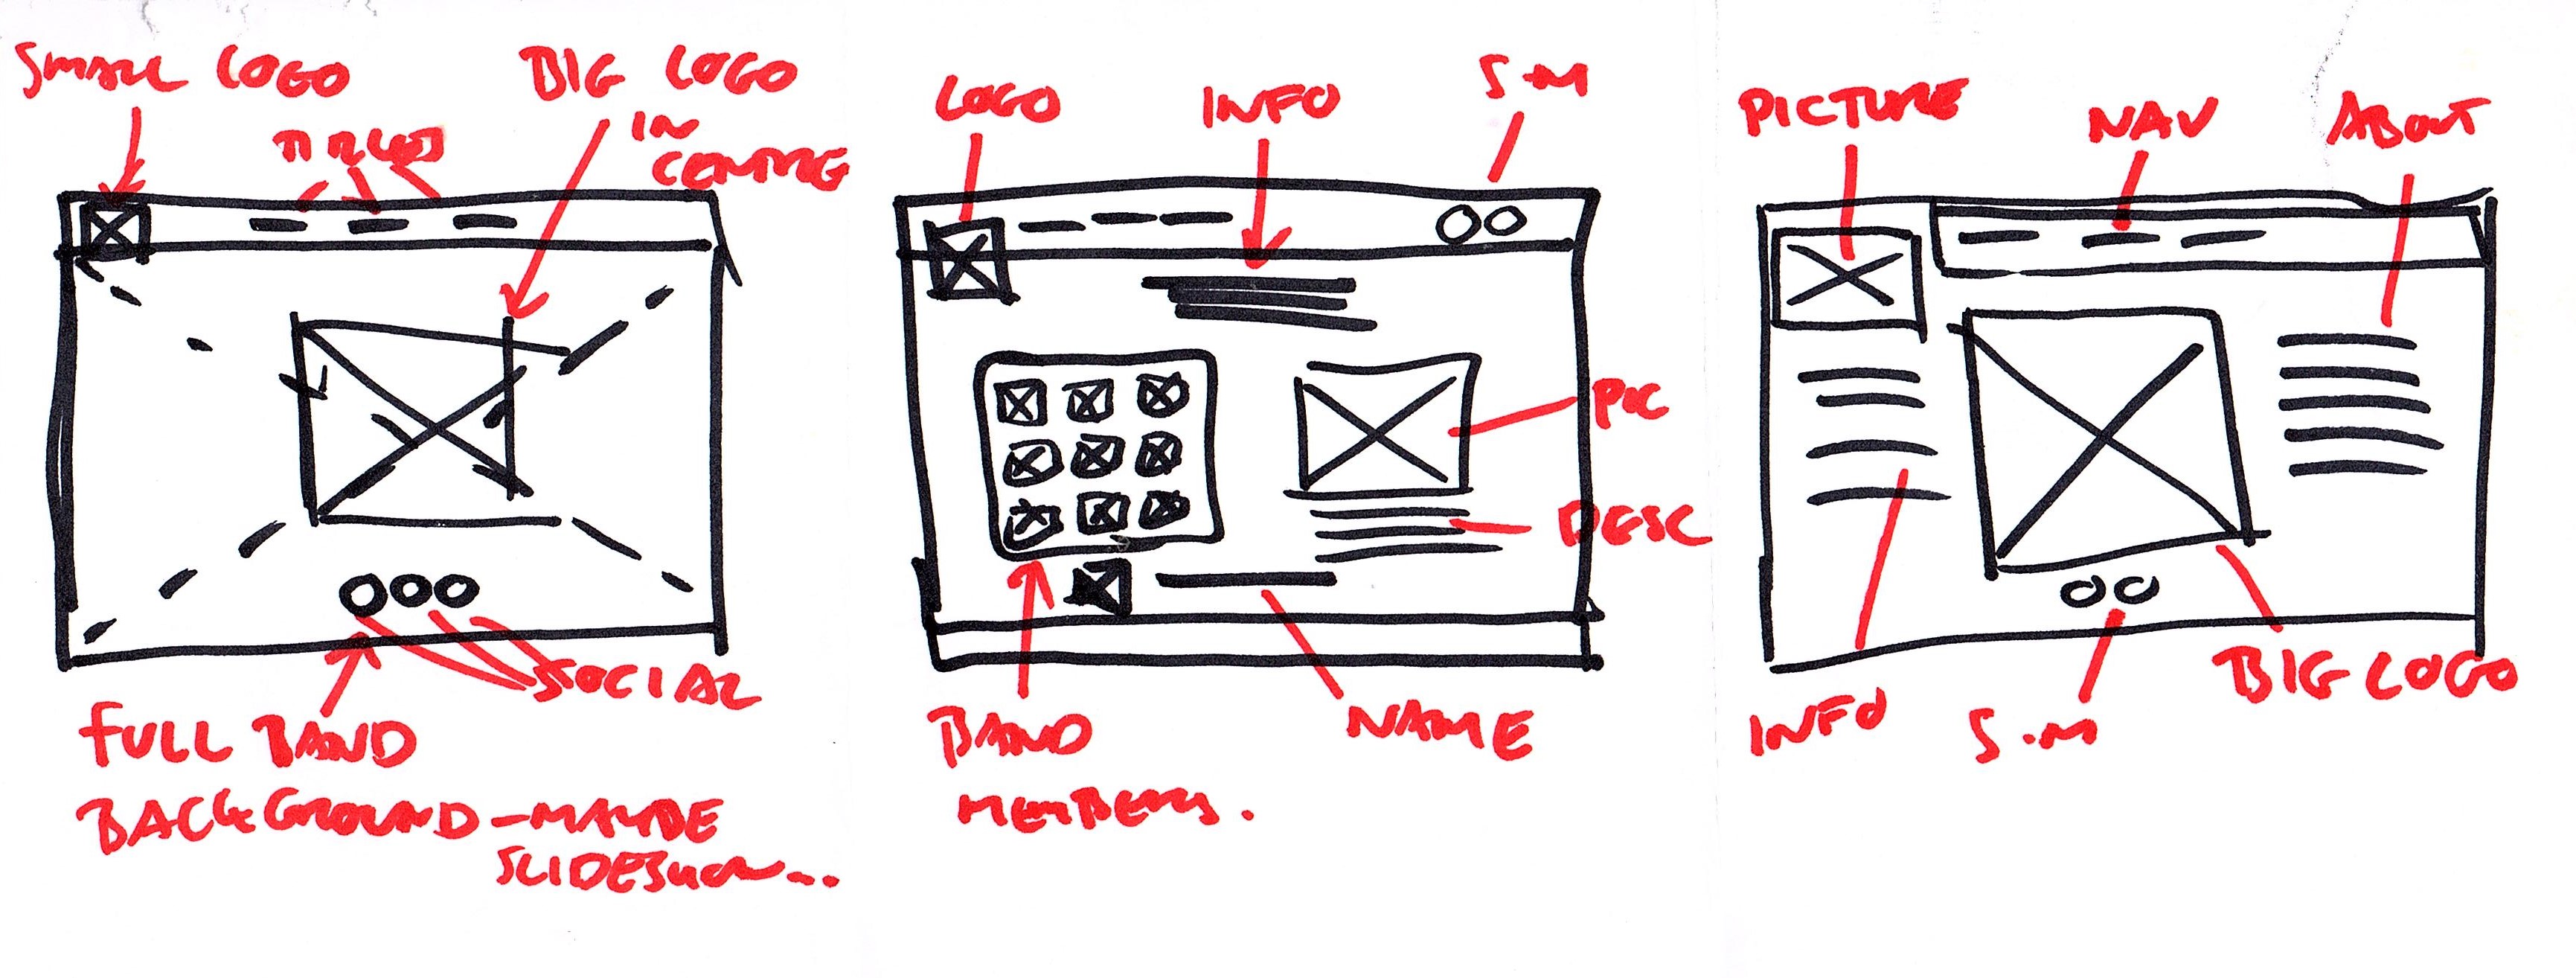 SMALL LOGO
BIG LOGO
IN
CENTRE
FULL BAND
BACKGROUND - MAYBE
SLIDESHOW...
SOCIAL
LOGO
INFO
S.M
PIC
DESC
BAND
MEMBERS.
NAME
PICTURE
NAV
ABOUT
INFO
S.M
BIG LOGO